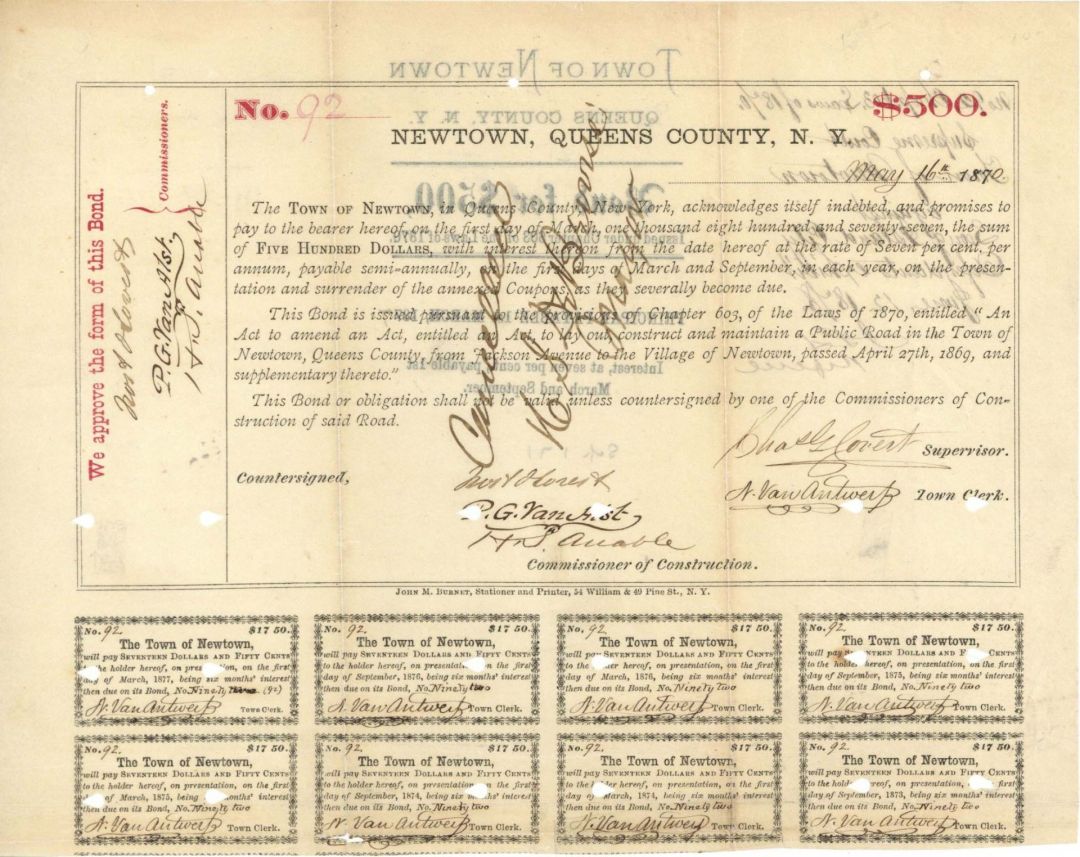 We approve the form of this Bond.
P.G. Van Alst.
Commissioners.
No. 92
$500.
NEWTOWN, QUEENS COUNTY, N. Y.
May 16th 1870.
The TOWN OF NEWTOWN, in Queens County, New York, acknowledges itself indebted, and promises to
pay to the bearer hereof, on the first day of March, one thousand eight hundred and seventy-seven, the sum
of FIVE HUNDRED DOLLARS, with interest thereon from the date hereof at the rate of Seven per cent. per
annum, payable semi-annually, on the first days of March and September, in each year, on the presen-
tation and surrender of the annexed Coupons, as they severally become due.
This Bond is issued pursuant to the provisions of Chapter 603, of the Laws of 1870, entitled "An
Act to amend an Act, entitled an Act to lay out, construct and maintain a Public Road in the Town of
Newtown, Queens County, from Jackson Avenue to the Village of Newtown, passed April 27th, 1869, and
supplementary thereto."
This Bond or obligation shall not be valid unless countersigned by one of the Commissioners of Con-
struction of said Road.
Cancelled
Chas G Covert Supervisor.
Countersigned,
N. Van Antwerp Town Clerk.
P.G. Van Alst
Commissioner of Construction.
JOHN M. BURNET, Stationer and Printer, 54 William & 49 Pine St., N. Y.
No. 92 $17 50.
The Town of Newtown,
will pay SEVENTEEN DOLLARS AND FIFTY CENTS
to the holder hereof, on presentation, on the first
day of March, 1877, being six months' interest
then due on its Bond, No. Ninety three (92)
N. Van Antwerp Town Clerk.
No. 92. $17 50.
The Town of Newtown,
will pay SEVENTEEN DOLLARS AND FIFTY CENTS
to the holder hereof, on presentation, on the first
day of September, 1876, being six months' interest
then due on its Bond, No. Ninety two
N. Van Antwerp Town Clerk.
No. 92 $17 50.
The Town of Newtown,
will pay SEVENTEEN DOLLARS AND FIFTY CENTS
to the holder hereof, on presentation, on the first
day of March, 1876, being six months' interest
then due on its Bond, No. Ninety two
N. Van Antwerp Town Clerk.
No. 92. $17 50.
The Town of Newtown,
will pay SEVENTEEN DOLLARS AND F
to the holder hereof, on presentation, on the first
day of September, 1875, being six months' interest
then due on its Bond, No. Ninety two
N. Van Antwerp Town Clerk.
No. 92. $17 50.
The Town of Newtown,
will pay SEVENTEEN DOLLARS AND FIFTY CENTS
to the holder hereof, on presentation, on the first
of March, 1875, being six months' interest
then due on its Bond, No. Ninety two
N. Van Antwerp Town Clerk.
No. 92. $17 50.
The Town of Newtown,
will pay SEVENTEEN DOLLARS AND FIFTY CENTS
to the holder hereof, on presentation, on the first
day of September, 1874, being six months' interest
then due on its Bond, No. Ninety two
N. Van Antwerp Town Clerk.
No. 92. $17 50.
The Town of Newtown,
will pay SEVENTEEN DOLLARS AND FIFTY CENTS
to the holder hereof, on presentation, on the first
day of March, 1874, being six months' interest
then due on its Bond, No. Ninety two
N. Van Antwerp Town Clerk.
No. 92. $17 50.
The Town of Newtown,
will pay SEVENTEEN DOLLARS AND FIFTY CENTS
to the holder hereof, on presentation, on the first
day of September, 1873, being six months' interest
then due on its Bond, No. Ninety two
N. Van Antwerp Town Clerk.